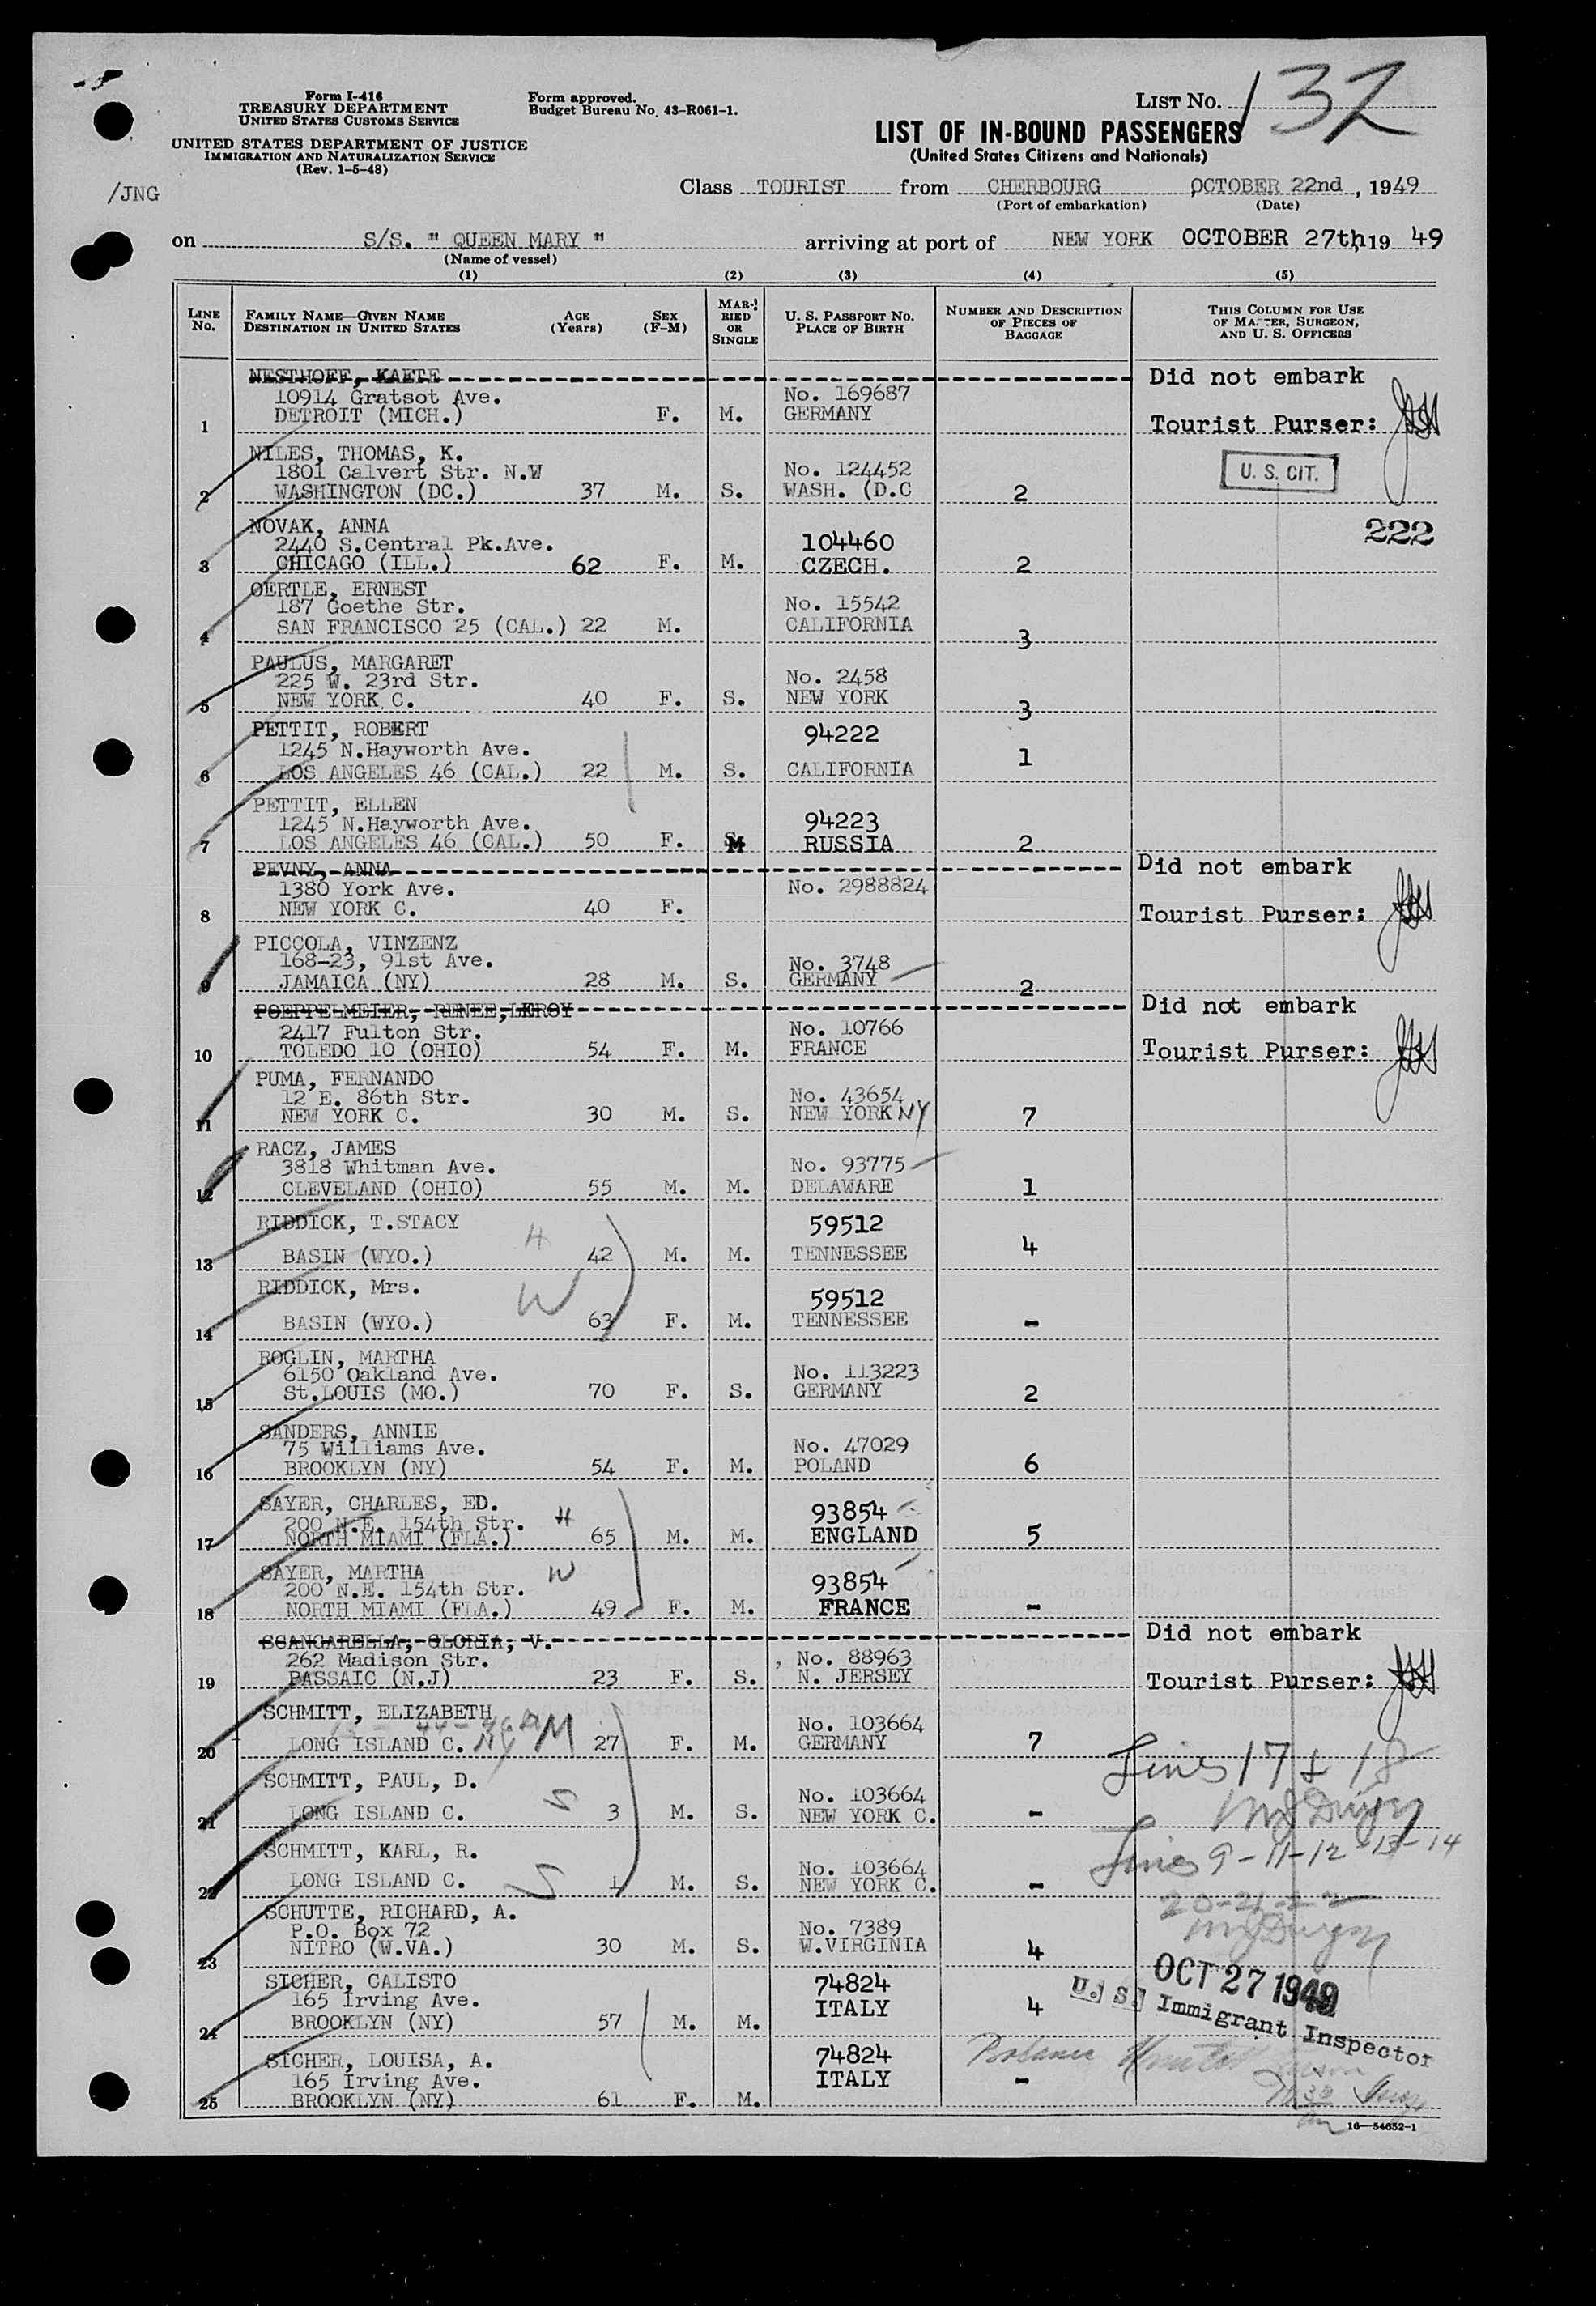 Form I-416
TREASURY DEPARTMENT
UNITED STATES CUSTOMS SERVICE
UNITED STATES DEPARTMENT OF JUSTICE
IMMIGRATION AND NATURALIZATION SERVICE
(Rev. 1-5-48)
Form approved.
Budget Bureau No. 43-R061-1.
LIST No. 132
LIST OF IN-BOUND PASSENGERS
(United States Citizens and Nationals)
/JNG
Class TOURIST from CHERBOURG OCTOBER 22nd, 1949
(Port of embarkation) (Date)
on S/S. " QUEEN MARY " arriving at port of NEW YORK OCTOBER 27th, 19 49
(Name of vessel)
(1) (2) (3) (4) (5)
LINE No. FAMILY NAME—GIVEN NAME DESTINATION IN UNITED STATES AGE (Years) SEX (F-M) MARRIED OR SINGLE U. S. PASSPORT No. PLACE OF BIRTH NUMBER AND DESCRIPTION OF PIECES OF BAGGAGE THIS COLUMN FOR USE OF MASTER, SURGEON, AND U. S. OFFICERS
NESTHOFF, KAETE Did not embark
10914 Gratsot Ave. No. 169687
1 DETROIT (MICH.) F. M. GERMANY Tourist Purser:
NILES, THOMAS, K.
1801 Calvert Str. N.W No. 124452 U. S. CIT.
2 WASHINGTON (DC.) 37 M. S. WASH. (D.C 2
NOVAK, ANNA 222
2440 S.Central Pk.Ave. 104460
3 CHICAGO (ILL.) 62 F. M. CZECH. 2
OERTLE, ERNEST
187 Goethe Str. No. 15542
4 SAN FRANCISCO 25 (CAL.) 22 M. CALIFORNIA 3
PAULUS, MARGARET
225 W. 23rd Str. No. 2458
5 NEW YORK C. 40 F. S. NEW YORK 3
PETTIT, ROBERT 94222
1245 N.Hayworth Ave. 1
6 LOS ANGELES 46 (CAL.) 22 M. S. CALIFORNIA
PETTIT, ELLEN
1245 N.Hayworth Ave. 94223
7 LOS ANGELES 46 (CAL.) 50 F. M RUSSIA 2
PEVNY, ANNA Did not embark
1380 York Ave. No. 2988824
8 NEW YORK C. 40 F. Tourist Purser:
PICCOLA, VINZENZ
168-23, 91st Ave. No. 3748
9 JAMAICA (NY) 28 M. S. GERMANY 2
POEPPELMEIER, RENEE, LEROY Did not embark
2417 Fulton Str. No. 10766
10 TOLEDO 10 (OHIO) 54 F. M. FRANCE Tourist Purser:
PUMA, FERNANDO
12 E. 86th Str. No. 43654
11 NEW YORK C. 30 M. S. NEW YORK NY 7
RACZ, JAMES
3818 Whitman Ave. No. 93775
12 CLEVELAND (OHIO) 55 M. M. DELAWARE 1
RIDDICK, T.STACY H 59512
13 BASIN (WYO.) 42 M. M. TENNESSEE 4
RIDDICK, Mrs. W 59512
14 BASIN (WYO.) 63 F. M. TENNESSEE -
ROGLIN, MARTHA
6150 Oakland Ave. No. 113223
15 St.LOUIS (MO.) 70 F. S. GERMANY 2
SANDERS, ANNIE
75 Williams Ave. No. 47029
16 BROOKLYN (NY) 54 F. M. POLAND 6
SAYER, CHARLES, ED. 93854
200 N.E. 154th Str. H
17 NORTH MIAMI (FLA.) 65 M. M. ENGLAND 5
SAYER, MARTHA W
200 N.E. 154th Str. 93854
18 NORTH MIAMI (FLA.) 49 F. M. FRANCE -
SCANGARELLA, GLORIA, V. Did not embark
262 Madison Str. No. 88963
19 PASSAIC (N.J) 23 F. S. N. JERSEY Tourist Purser:
SCHMITT, ELIZABETH No. 103664
20 LONG ISLAND C. NY M 27 F. M. GERMANY 7
Lines 17 & 18
SCHMITT, PAUL, D. No. 103664
21 LONG ISLAND C. S 3 M. S. NEW YORK C. -
Lines 9-11-12-13-14
SCHMITT, KARL, R. No. 103664
22 LONG ISLAND C. S 1 M. S. NEW YORK C. -
20-21-22
SCHUTTE, RICHARD, A.
P.O. Box 72 No. 7389
23 NITRO (W.VA.) 30 M. S. W.VIRGINIA 4
OCT 27 1949
U. S. Immigrant Inspector
SICHER, CALISTO 74824
165 Irving Ave. ITALY 4
24 BROOKLYN (NY) 57 M. M.
SICHER, LOUISA, A. 74824 Balance
165 Irving Ave. ITALY -
25 BROOKLYN (NY) 61 F. M.
16—54652-1